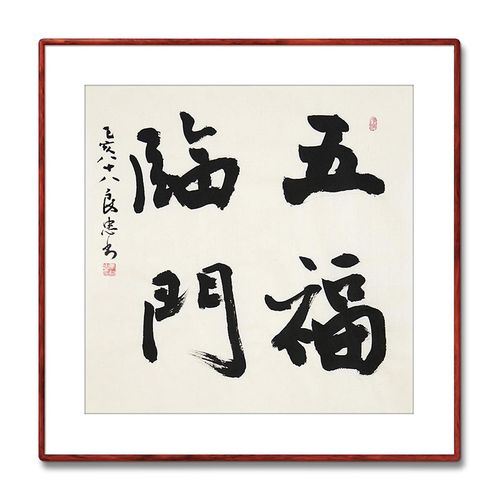 五福
臨門
己亥八十八良忠书